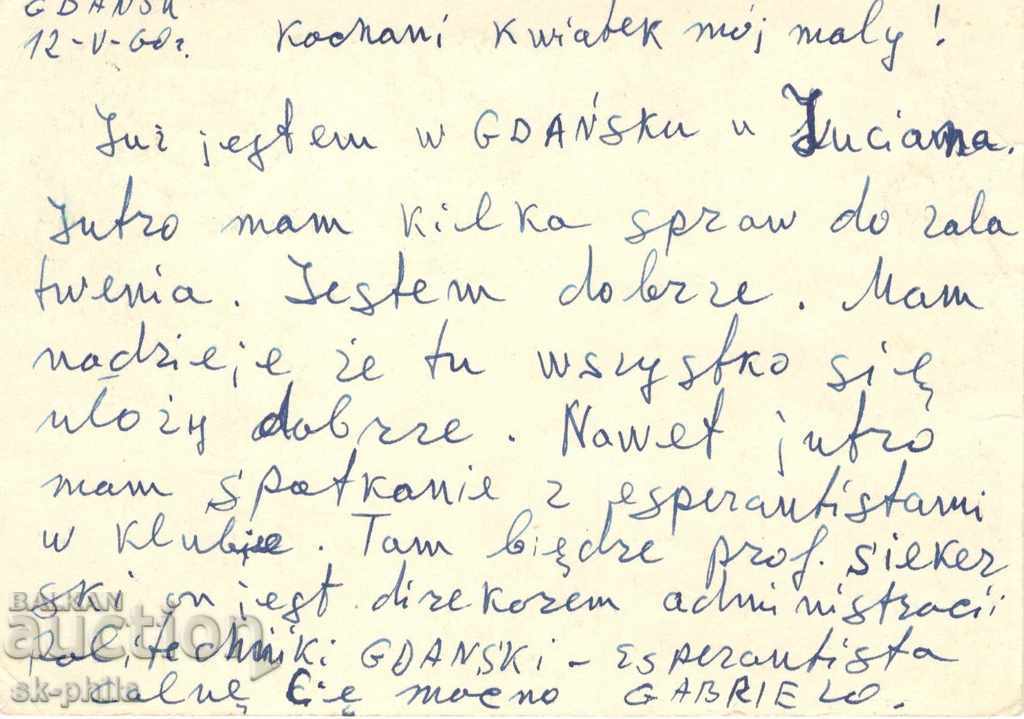 GDAŃSK
12-V-60r.
Kochani Kwiatek mój maly!
Już jestem w GDAŃSKU u Luciana.
Jutro mam kilka spraw do zala
twenia. Jestem dobrze. Mam
nadzieję że tu wszystko się
uloży dobrze. Nawet jutro
mam spotkanie z esperantistami
w klubie. Tam będze prof. sieker
ski on jest direkorem administracii
Politechniki GDANSKI - Esperantista
Calnę Cię mocno GABRIELO.
BALKAN
auction
sk-phila